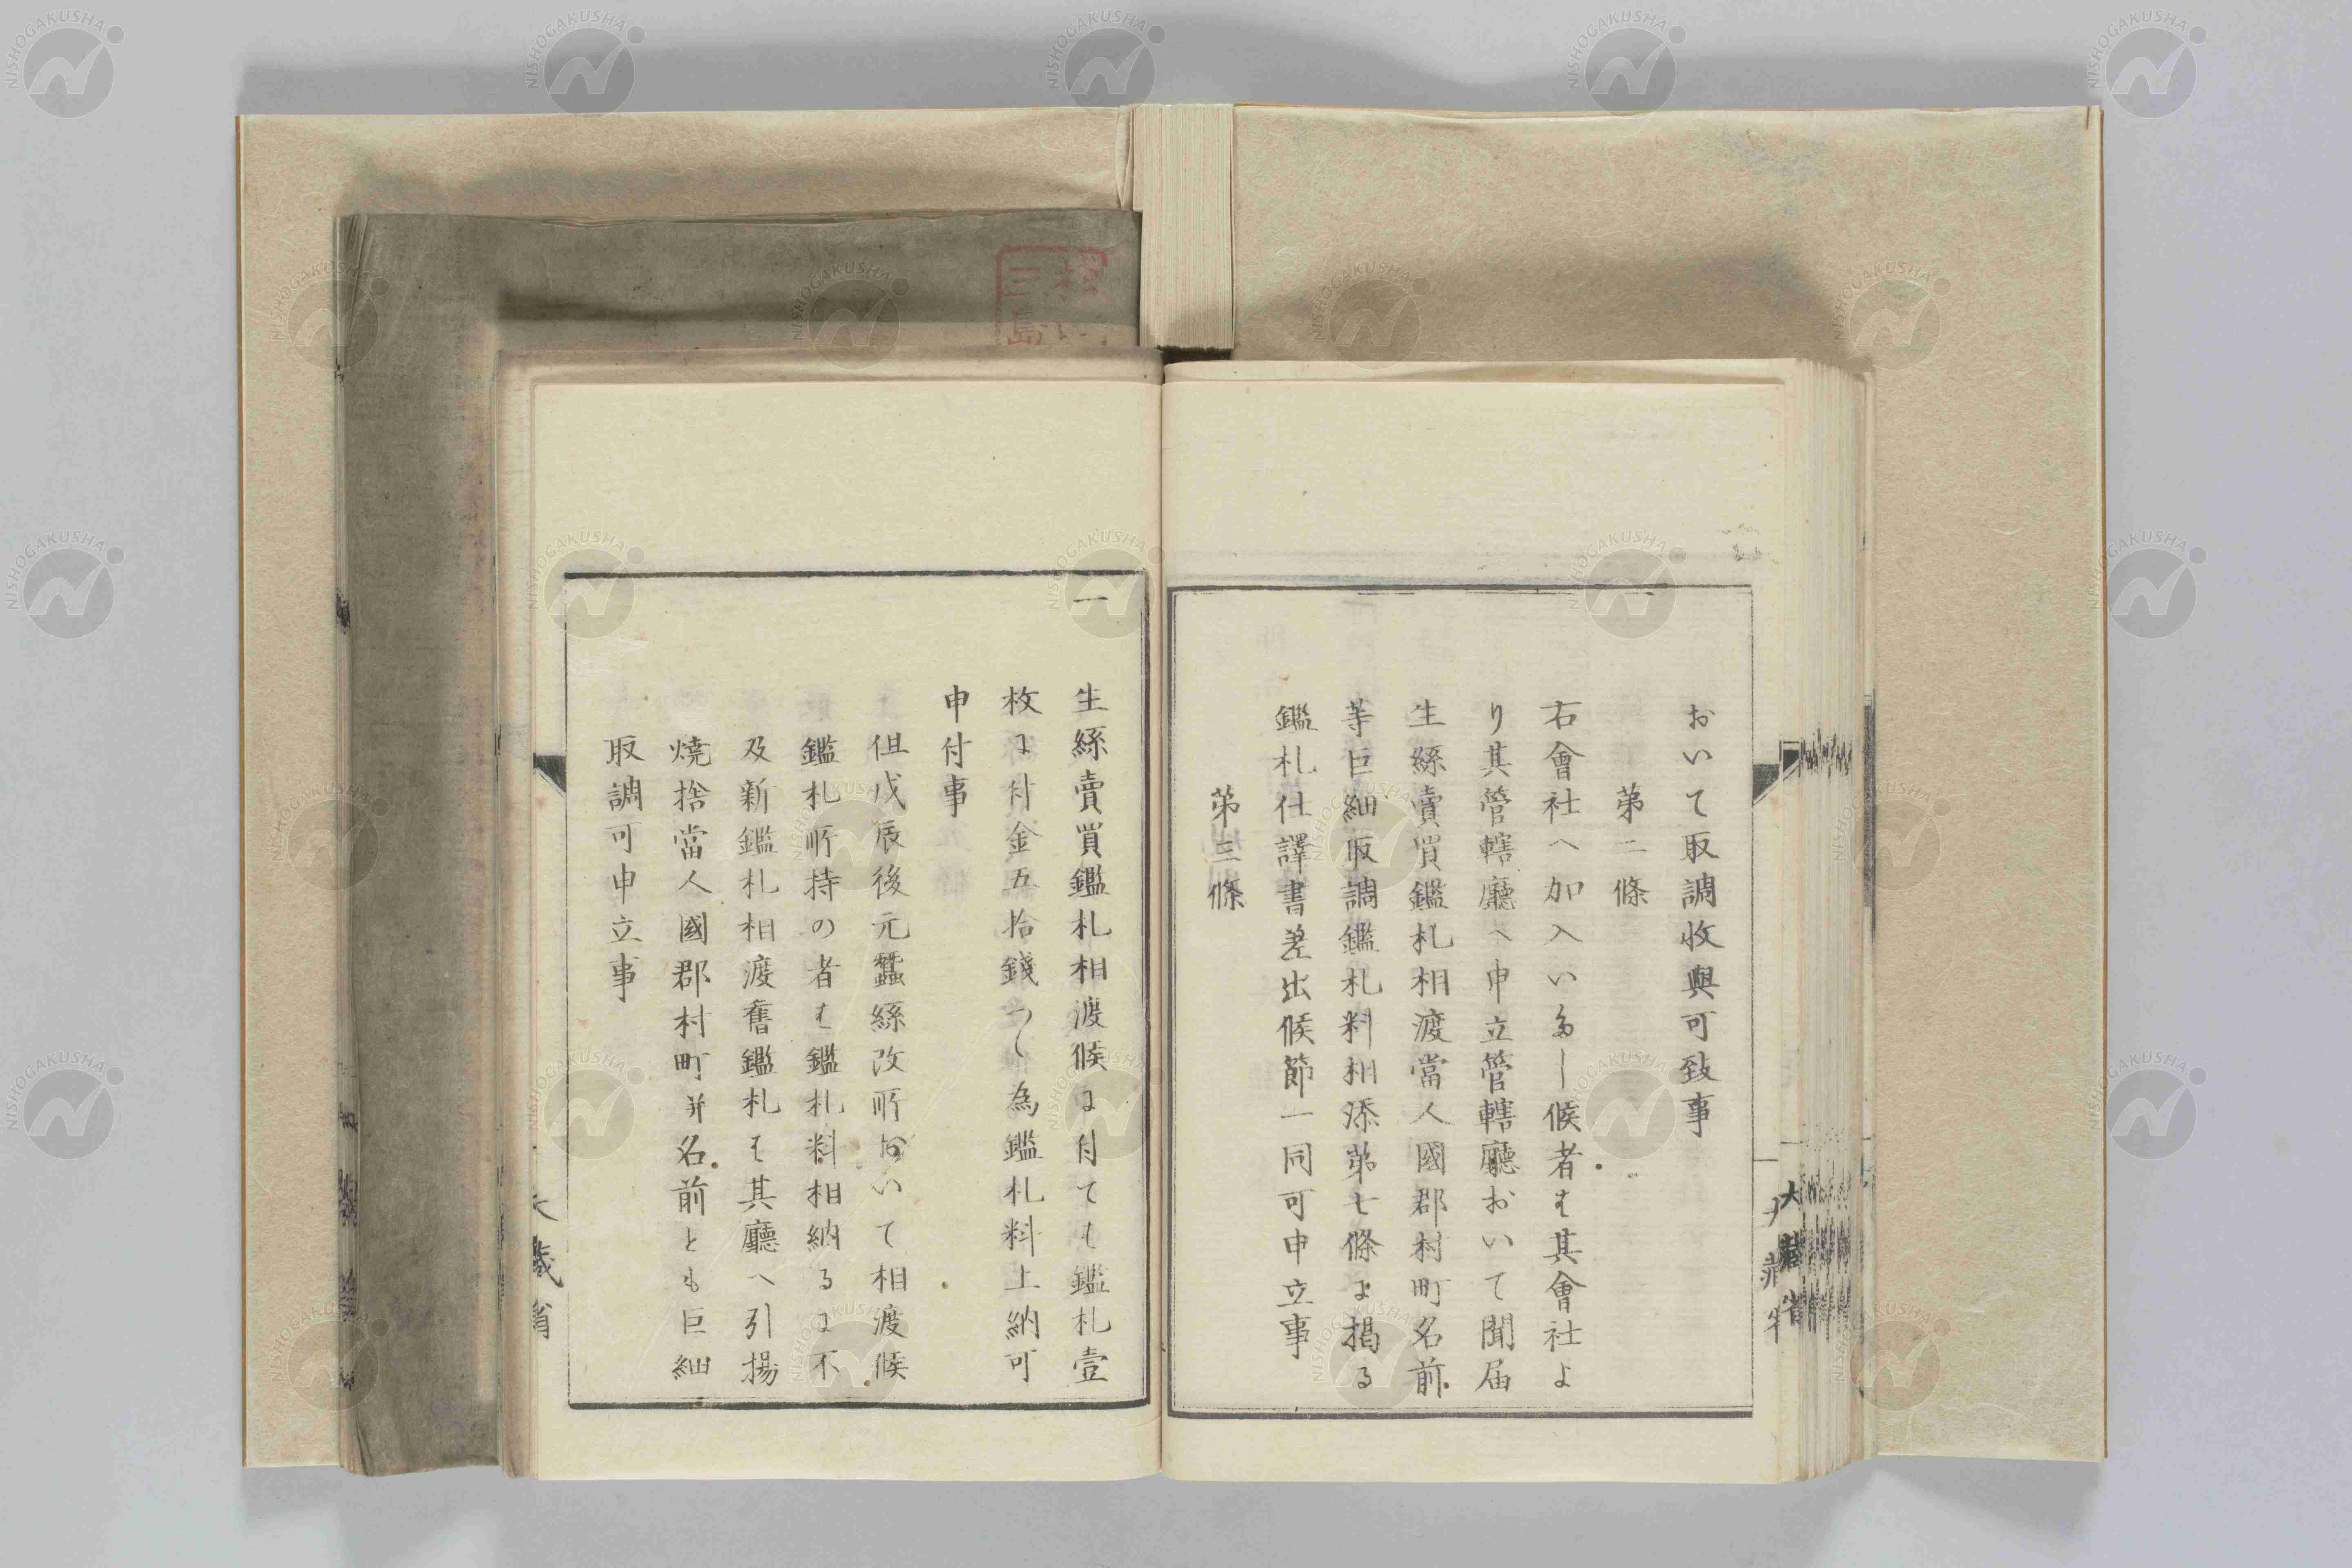 おいて取調收與可致事
第二條
右會社へ加入いたし候者は其會社よ
り其管轄廳へ申立管轄廳おいて聞届
生絲賣買鑑札相渡當人國郡村町名前
等巨細取調鑑札料相添第七條に掲る
鑑札仕譯書差出候節一同可申立事
第三條
一
生絲賣買鑑札相渡候に付ても鑑札壹
枚に付金五拾錢つゝ為鑑札料上納可
申付事
但戊辰後元蠶絲改所おいて相渡候
鑑札所持の者は鑑札料相納るに不
及新鑑札相渡舊鑑札は其廳へ引揚
燒捨當人國郡村町并名前とも巨細
取調可申立事
大藏省
NISHOGAKUSHA